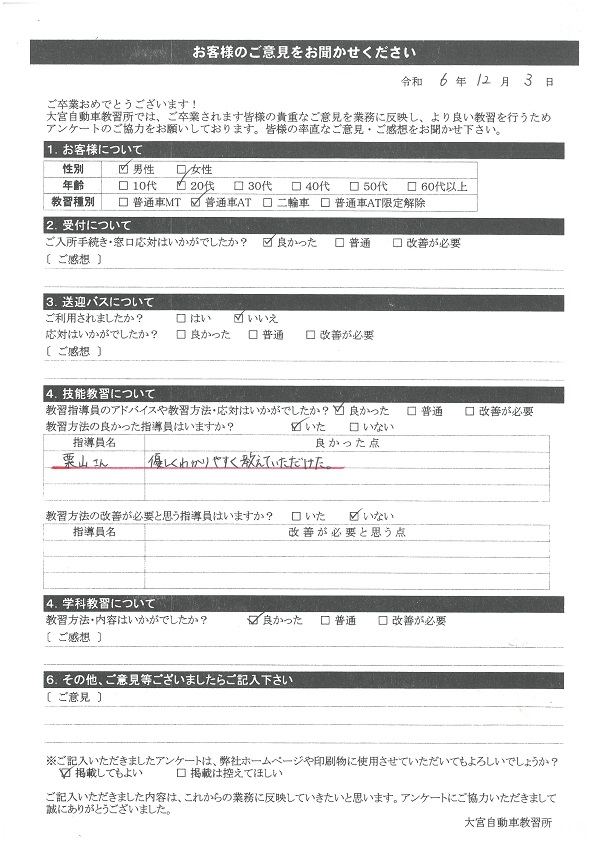 お客様のご意見をお聞かせください
令和 6 年 12 月 3 日
ご卒業おめでとうございます！
大宮自動車教習所では、ご卒業されます皆様の貴重なご意見を業務に反映し、より良い教習を行うため
アンケートのご協力をお願いしております。皆様の率直なご意見・ご感想をお聞かせ下さい。
1. お客様について
性別 ☑男性 □女性
年齢 □10代 ☑20代 □30代 □40代 □50代 □60代以上
教習種別 □普通車MT ☑普通車AT □二輪車 □普通車AT限定解除
2. 受付について
ご入所手続き・窓口応対はいかがでしたか？ ☑良かった □普通 □改善が必要
〔 ご感想 〕
3. 送迎バスについて
ご利用されましたか？ □はい ☑いいえ
応対はいかがでしたか？ □良かった □普通 □改善が必要
〔 ご感想 〕
4. 技能教習について
教習指導員のアドバイスや教習方法・応対はいかがでしたか？ ☑良かった □普通 □改善が必要
教習方法の良かった指導員はいますか？ ☑いた □いない
指導員名 良かった点
栗山さん 優しくわかりやすく教えていただけた。
教習方法の改善が必要と思う指導員はいますか？ □いた ☑いない
指導員名 改善が必要と思う点
4. 学科教習について
教習方法・内容はいかがでしたか？ ☑良かった □普通 □改善が必要
〔 ご感想 〕
6. その他、ご意見等ございましたらご記入下さい
〔 ご意見 〕
※ご記入いただきましたアンケートは、弊社ホームページや印刷物に使用させていただいてもよろしいでしょうか？
☑掲載してもよい □掲載は控えてほしい
ご記入いただきました内容は、これからの業務に反映していきたいと思います。アンケートにご協力いただきまして
誠にありがとうございました。
大宮自動車教習所